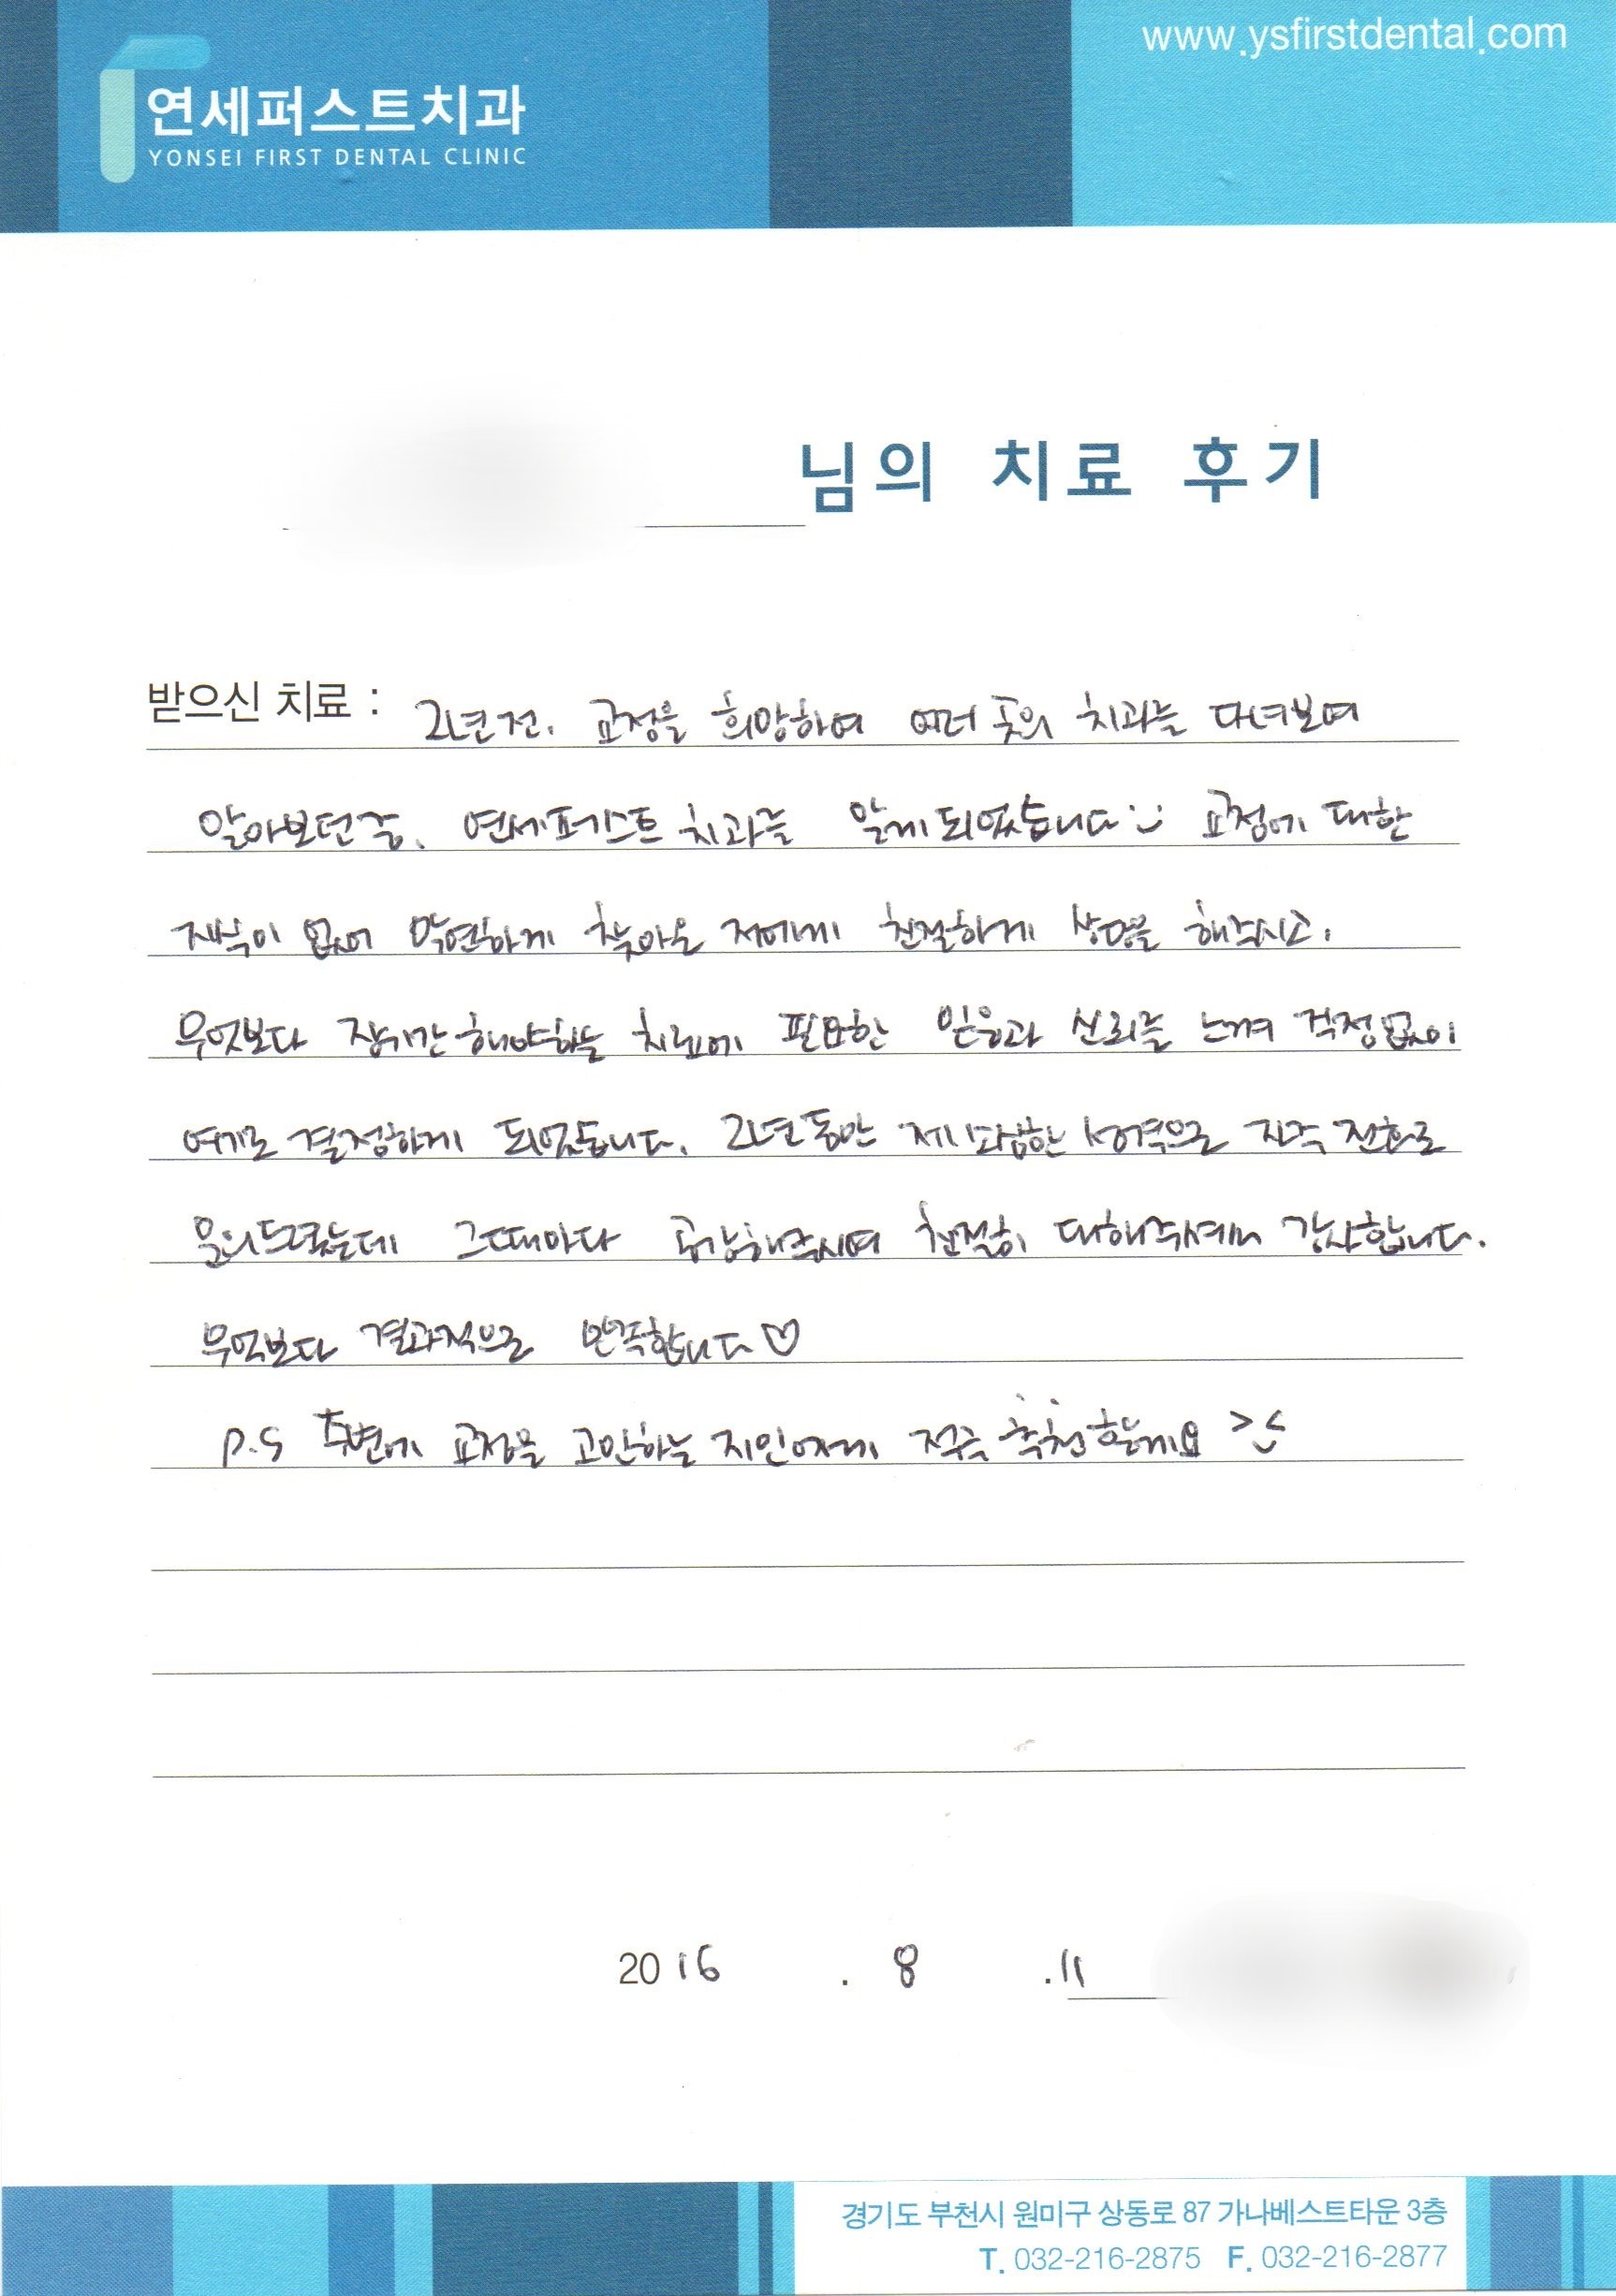 www.ysfirstdental.com
연세퍼스트치과
YONSEI FIRST DENTAL CLINIC
님의 치료 후기
받으신 치료 : 2년전, 교정을 희망하여 여러 곳의 치과를 다녀보며
알아보던중, 연세퍼스트 치과를 알게되었습니다 :) 교정에 대한
지식이 없어 막연하게 찾아온 저에게 친절하게 설명을 해주시고,
무엇보다 장기간해야하는 치료에 필요한 믿음과 신뢰를 느껴 걱정없이
여기로 결정하게 되었습니다. 2년동안 제 성격으로 자주 전화로
문의드렸는데 그때마다 공감해주시며 친절히 대해주셔서 감사합니다.
무엇보다 결과적으로 만족합니다♡
P.S 주변에 교정을 고민하는 지인에게 적극 추천할게요 >_<
2016 . 8 .11
경기도 부천시 원미구 상동로 87 가나베스트타운 3층
T. 032-216-2875 F. 032-216-2877